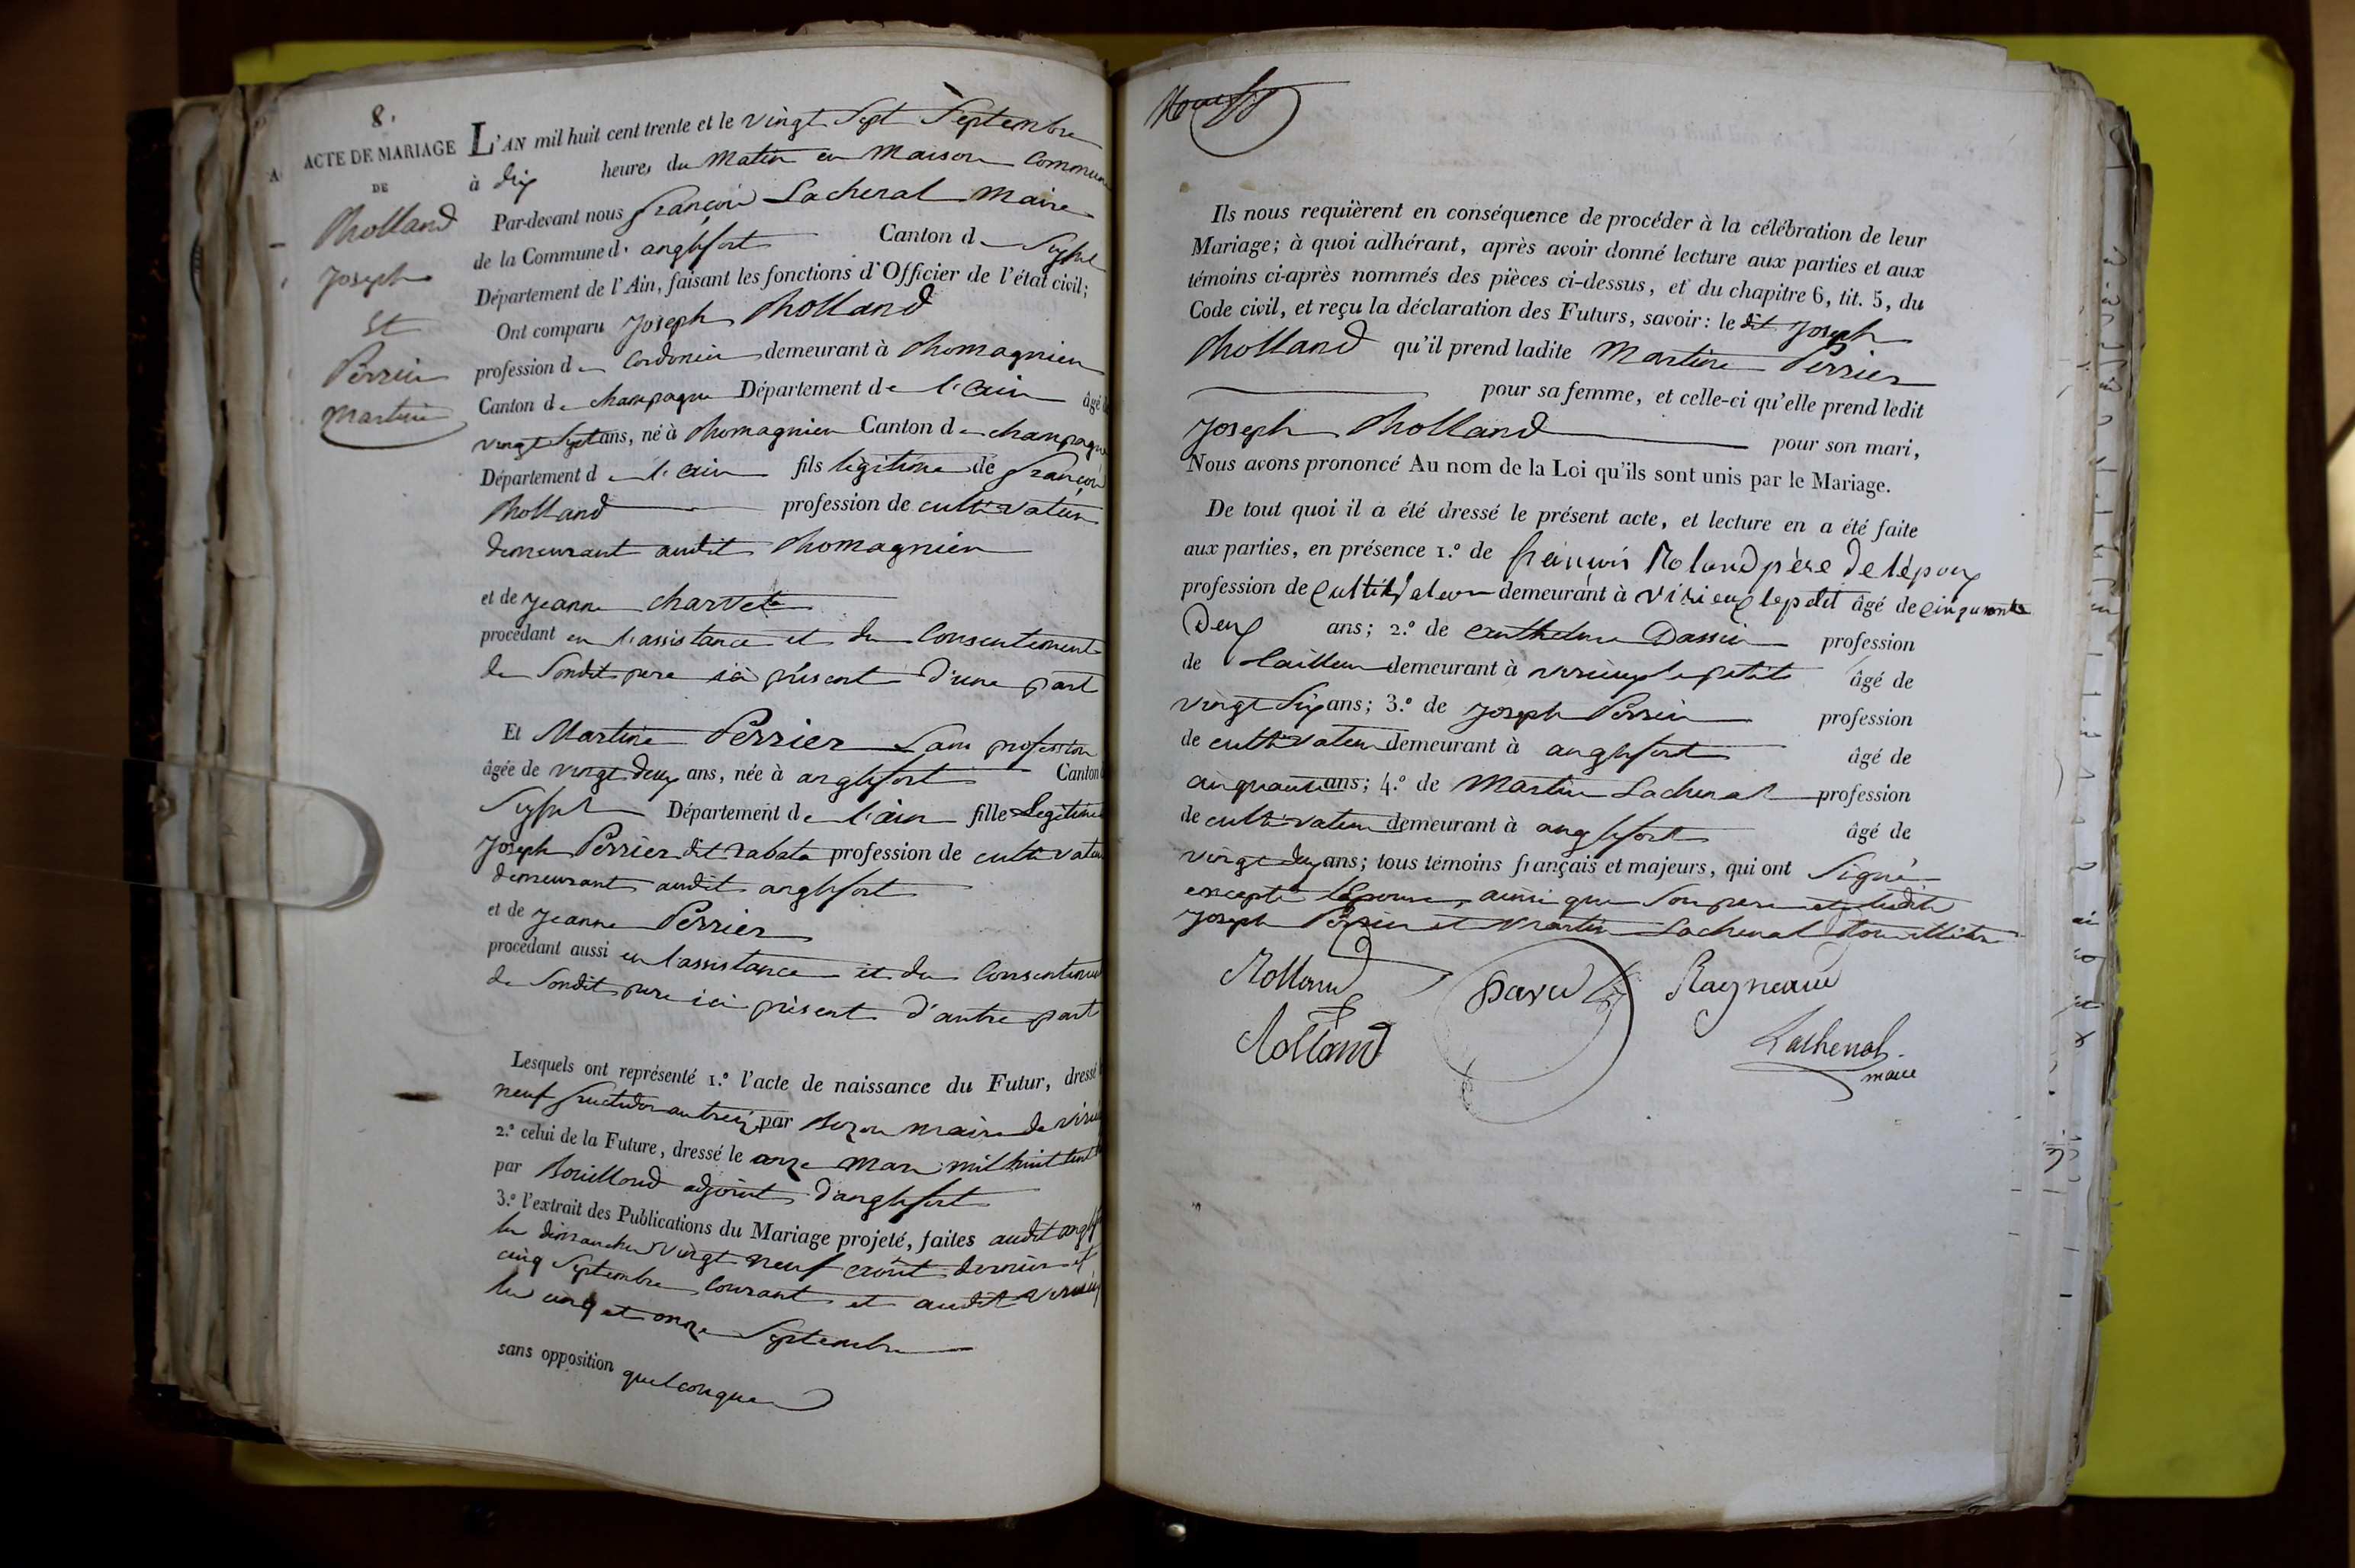 8.
ACTE DE MARIAGE
DE
Rholland
Joseph
et
Perrier
Martine
L'AN mil huit cent trente et le vingt sept Septembre
à dix heures du Matin en Maison Commune
Par-devant nous françois Lachenal Maire
de la Commune d'anglefort Canton de Seyssel
Département de l'Ain, faisant les fonctions d'Officier de l'état civil;
Ont comparu Joseph Rholland
profession de Cordonier demeurant à Rhomagnieu
Canton de champagne Département de l'ain âgé
vingt Sept ans, né à Rhomagnieu Canton de champagne
Département de l'ain fils légitime de françois
Rholland profession de cultivateur
demeurant audit Rhomagnieu
et de Jeanne Charvet
procédant en l'assistance et du Consentement
de Sondit pere ici présent d'une part
Et Martine Perrier Sans profession
âgée de vingt deux ans, née à anglefort Canton
Seyssel Département de l'ain fille Legitime
Joseph Perrier dit Rabata profession de cultivateur
demeurant audit anglefort
et de Jeanne Perrier
procédant aussi en l'assistance et du Consentement
de Sondit pere ici présent d'autre part
Lesquels ont représenté 1.º l'acte de naissance du Futur, dressé
neuf fructidor an treize par maire de
2.º celui de la Future, dressé le onze Mars mil huit cent
par Bouilloud adjoint d'anglefort
3.º l'extrait des Publications du Mariage projeté, faites audit
les dimanches vingt neuf août dernier et
cinq Septembre Courant et audit
les cinq et onze Septembre
sans opposition quelconque
Ils nous requièrent en conséquence de procéder à la célébration de leur
Mariage; à quoi adhérant, après avoir donné lecture aux parties et aux
témoins ci-après nommés des pièces ci-dessus, et du chapitre 6, tit. 5, du
Code civil, et reçu la déclaration des Futurs, savoir: le dit Joseph
Rholland qu'il prend ladite Martine Perrier
pour sa femme, et celle-ci qu'elle prend ledit
Joseph Rholland pour son mari,
Nous avons prononcé Au nom de la Loi qu'ils sont unis par le Mariage.
De tout quoi il a été dressé le présent acte, et lecture en a été faite
aux parties, en présence 1.º de françois Roland père de lépoux
profession de Cultivateur demeurant à virieux lepetit âgé de cinquante
Deux ans; 2.º de anthelme Dassin profession
de tailleur demeurant à virieux le petit âgé de
vingt Six ans; 3.º de Joseph Perrier profession
de cultivateur demeurant à anglefort âgé de
cinquante ans; 4.º de Martin Lachenal profession
de cultivateur demeurant à anglefort âgé de
vingt deux ans; tous témoins français et majeurs, qui ont Signé
excepté l'Epouse, ainsi que Son pere et ledit
Joseph Perrier et Martin Lachenal
Rolland
Rolland
Lachenal
maire